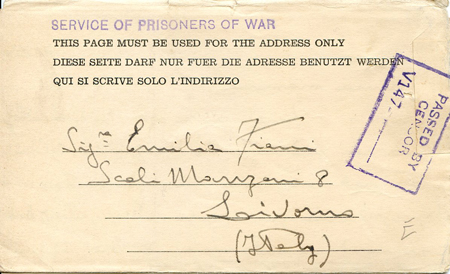 SERVICE OF PRISONERS OF WAR
THIS PAGE MUST BE USED FOR THE ADDRESS ONLY
DIESE SEITE DARF NUR FUER DIE ADRESSE BENUTZT WERDEN
QUI SI SCRIVE SOLO L'INDIRIZZO
PASSED BY
CENSOR
V147
Sigra Emilia
Scali Manzoni 8
Livorno
(Italy)